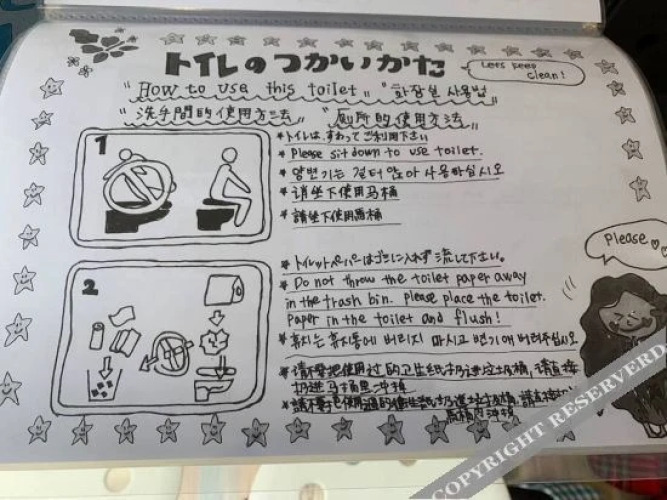 トイレのつかいかた
Let's keep clean!
"How to use this toilet" "화장실 사용법"
"洗手間的使用方法" "厠所的使用方法"
1
*トイレは、すわってご利用下さい
*Please sit down to use toilet.
*양변기는 걸터 앉아 사용하십시오
*请坐下使用马桶
*請坐下使用馬桶
Please
2
*トイレットペーパーはゴミに入れず流して下さい。
*Do not throw the toilet paper away
in the trash bin. please place the toilet.
paper in the toilet and flush!
*휴지는 휴지통에 버리지 마시고 변기에 버려주십시오
*请不要把使用过的卫生纸扔进垃圾桶,请直接
扔进马桶里冲掉
*請不要把使用過的衛生紙扔進垃圾桶,請直接
馬桶內沖掉
COPYRIGHT RESERVERD